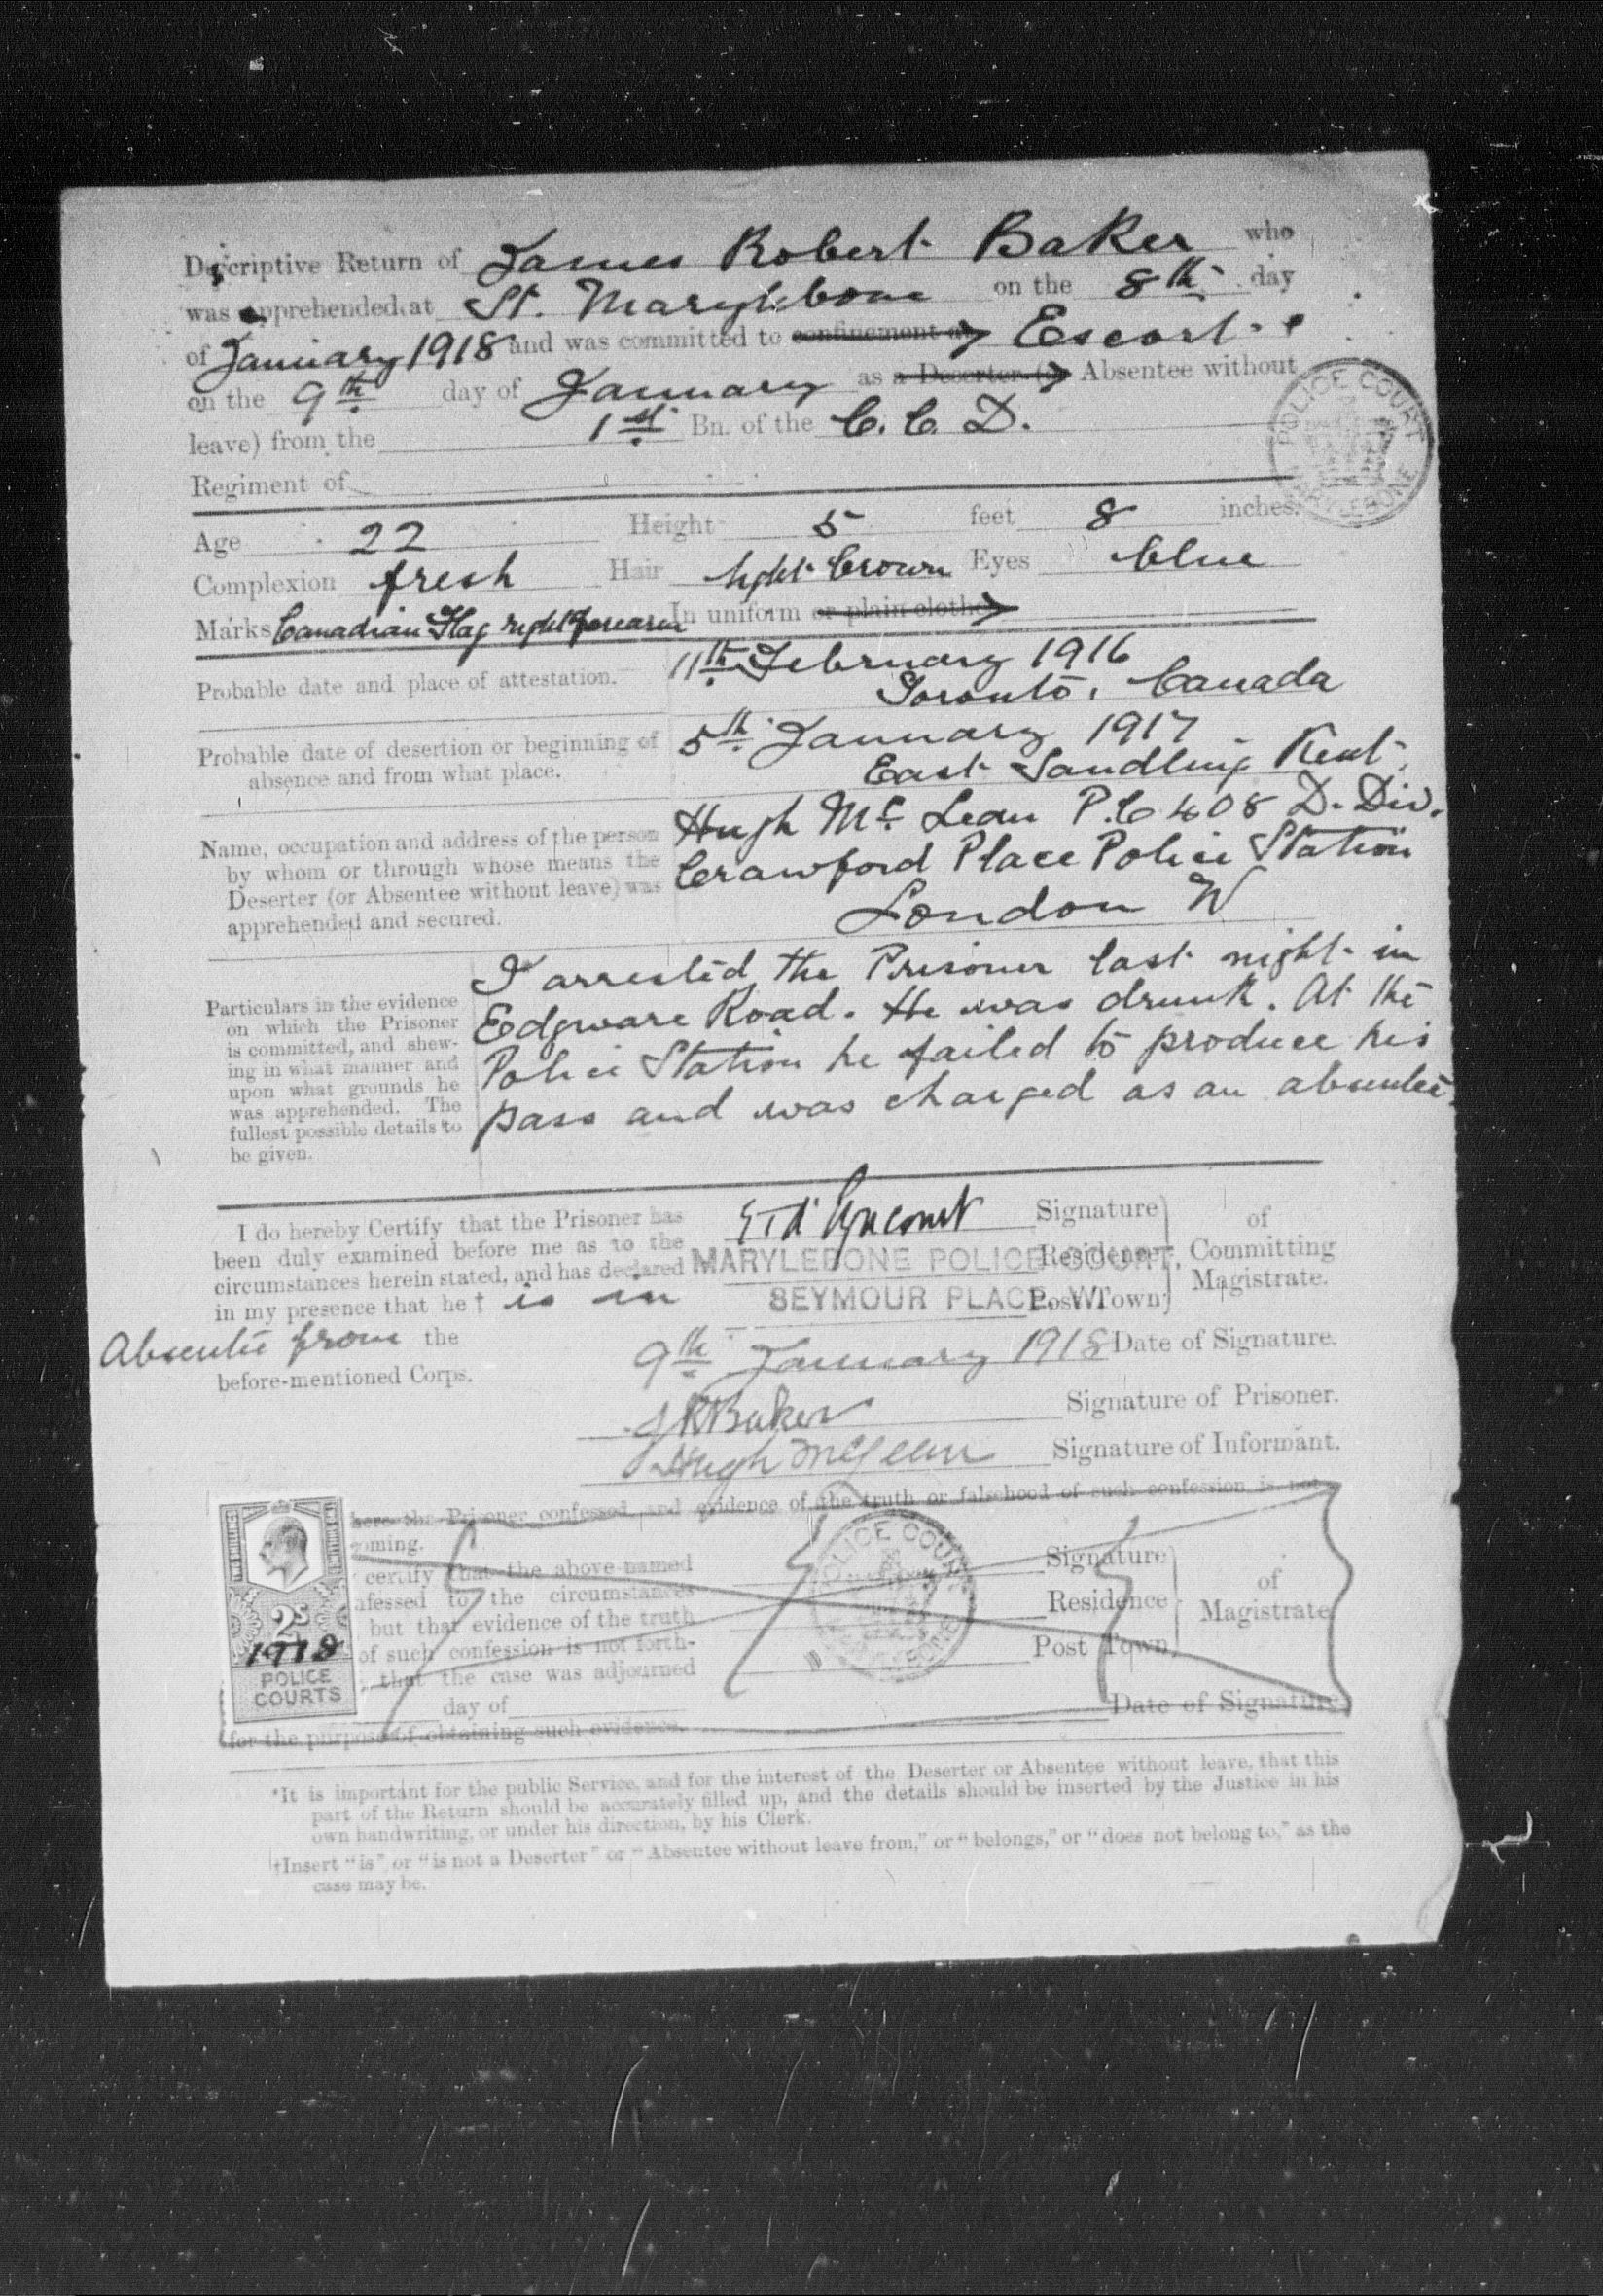 Descriptive Return of James Robert Baker who
was apprehended at St. Marylebone on the 8th day
of January 1918 and was committed to confinement at Escort.
on the 9th day of January as a Deserter (or Absentee without
leave) from the 1st Bn. of the C. C. D.
Regiment of
POLICE COURT MARYLEBONE
Age 22 Height 5 feet 8 inches.
Complexion fresh Hair light brown Eyes blue
Marks Canadian Flag right forearm In uniform or plain clothes
Probable date and place of attestation. 11th February 1916
Toronto, Canada
Probable date of desertion or beginning of 5th January 1917
absence and from what place. East Sandling Kent.
Name, occupation and address of the person Hugh Mc Lean P.C 408 D. Div.
by whom or through whose means the Crawford Place Police Station
Deserter (or Absentee without leave) was London W
apprehended and secured.
I arrested the Prisoner last night in
Edgware Road. He was drunk. At the
Police Station he failed to produce his
pass and was charged as an absentee.
Particulars in the evidence
on which the Prisoner
is committed, and shew-
ing in what manner and
upon what grounds he
was apprehended. The
fullest possible details to
be given.
I do hereby Certify that the Prisoner has
been duly examined before me as to the
circumstances herein stated, and has declared
in my presence that he† is an
Absentee from the
before-mentioned Corps.
Signature
MARYLEBONE POLICE COURT, Residence
SEYMOUR PLACE, W. Post Town
of
Committing
Magistrate.
9th January 1918 Date of Signature.
J R Baker Signature of Prisoner.
Hugh McLean Signature of Informant.
here the Prisoner confessed, and evidence of the truth or falsehood of such confession is not
oming.
certify that the above-named
nfessed to the circumstances
but that evidence of the truth
of such confession is not forth-
that the case was adjourned
day of
for the purpose of obtaining such evidence.
Signature
Residence
Post Town
of
Magistrate
Date of Signature
POLICE COURT MARYLEBONE
TWO SHILLINGS
2s
1918
POLICE
COURTS
*It is important for the public Service, and for the interest of the Deserter or Absentee without leave, that this
part of the Return should be accurately filled up, and the details should be inserted by the Justice in his
own handwriting, or under his direction, by his Clerk.
†Insert "is" or "is not a Deserter" or "Absentee without leave from," or "belongs," or "does not belong to," as the
case may be.